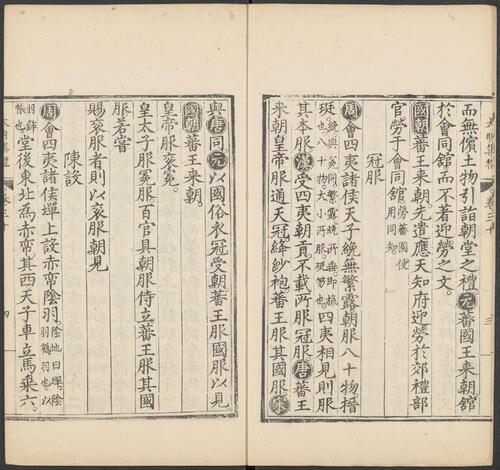 而無儐土物引詣朝堂之禮元蕃國王来朝舘
於會同舘而不著迎勞之文。
國朝蕃王来朝先遣應天知府迎勞於郊禮部
官勞于會同舘勞蕃國使用同知
冠服
周會四夷諸侯天子絻無繁露朝服八十物搢
珽絻與冕同。繁露絻所垂即旒也。八十物大小所服。珽笏也。四夷相見則服
其本服漢受四夷朝貢不載所服冠服唐蕃王
来朝皇帝服通天冠絳紗袍蕃王服其國服宋
三
與唐同元以國俗衣冠受朝蕃王服國服以見
國朝蕃王来朝。
皇帝服衮冕。
皇太子服冕服百官具朝服侍立蕃王服其國
服若甞
賜衮服者則以衮服朝見
陳設
周會四夷諸侯墠上設赤帟陰羽除地曰墠。陰羽鶴羽也。以
羽飾帳也。堂後東北為赤帟其西天子車立馬乗六。
四